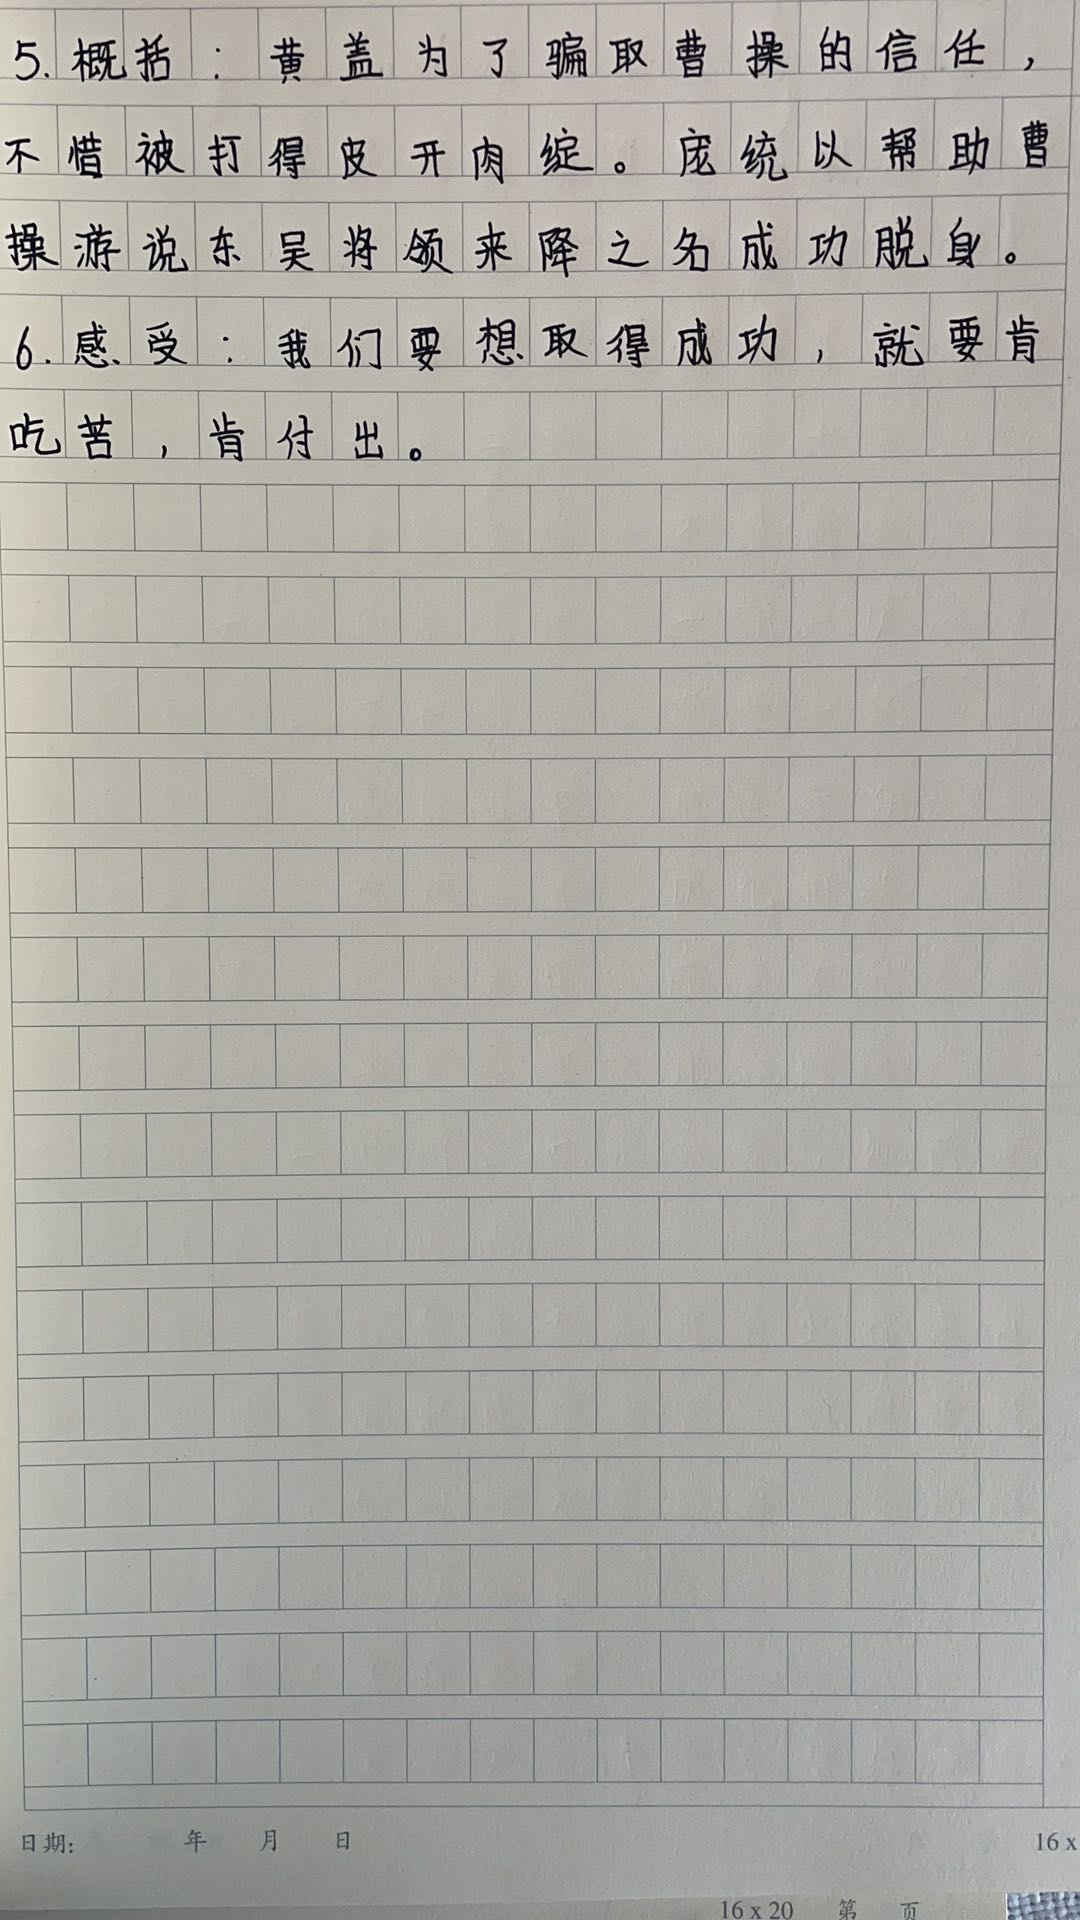 5.概括：黄盖为了骗取曹操的信任，
不惜被打得皮开肉绽。庞统以帮助曹
操游说东吴将领来降之名成功脱身。
6.感受：我们要想取得成功，就要肯
吃苦，肯付出。
日期： 年 月 日
16 x
16 x 20 第 页